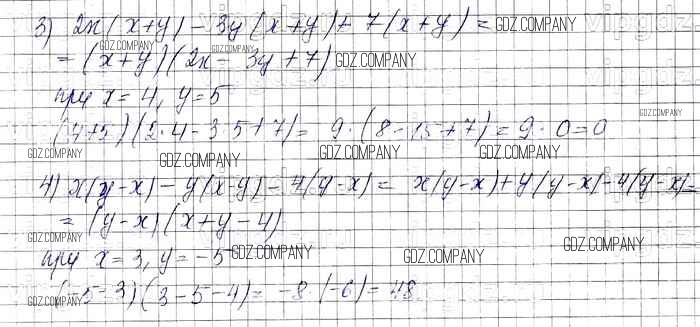 3) 2x(x+y) - 3y(x+y) + 7(x+y) = GDZ.COMPANY
GDZ.COMPANY GDZ.COMPANY
= (x+y)(2x - 3y + 7) GDZ.COMPANY
при x = 4, y = 5
GDZ.COMPANY
(4+5)(2·4 - 3·5 + 7) = 9·(8 - 15 + 7) = 9·0 = 0
GDZ.COMPANY GDZ.COMPANY GDZ.COMPANY GDZ.COMPANY
4) x(y-x) - y(x-y) - 4(y-x) = x(y-x) + y(y-x) - 4(y-x) =
= (y-x)(x+y-4)
GDZ.COMPANY
при x = 3, y = -5 GDZ.COMPANY GDZ.COMPANY GDZ.COMPANY
(-5-3)(3-5-4) = -8·(-6) = 48
GDZ.COMPANY